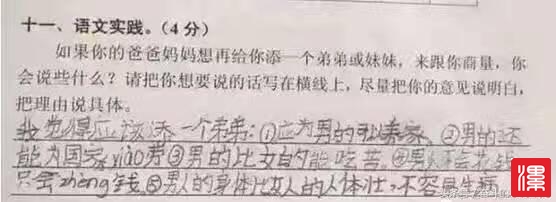 十一、语文实践。（4分）
如果你的爸爸妈妈想再给你添一个弟弟或妹妹，来跟你商量，你
会说些什么？请把你想要说的话写在横线上，尽量把你的意见说明白，
把理由说具体。
我觉得应该添一个弟弟：①应为男的 养家。②男的还
能为国家xiào劳③男的比女的能吃苦。④男人不会花钱
只会zhèng钱。⑤男人的身体比女人的人体壮，不容易生病
漯